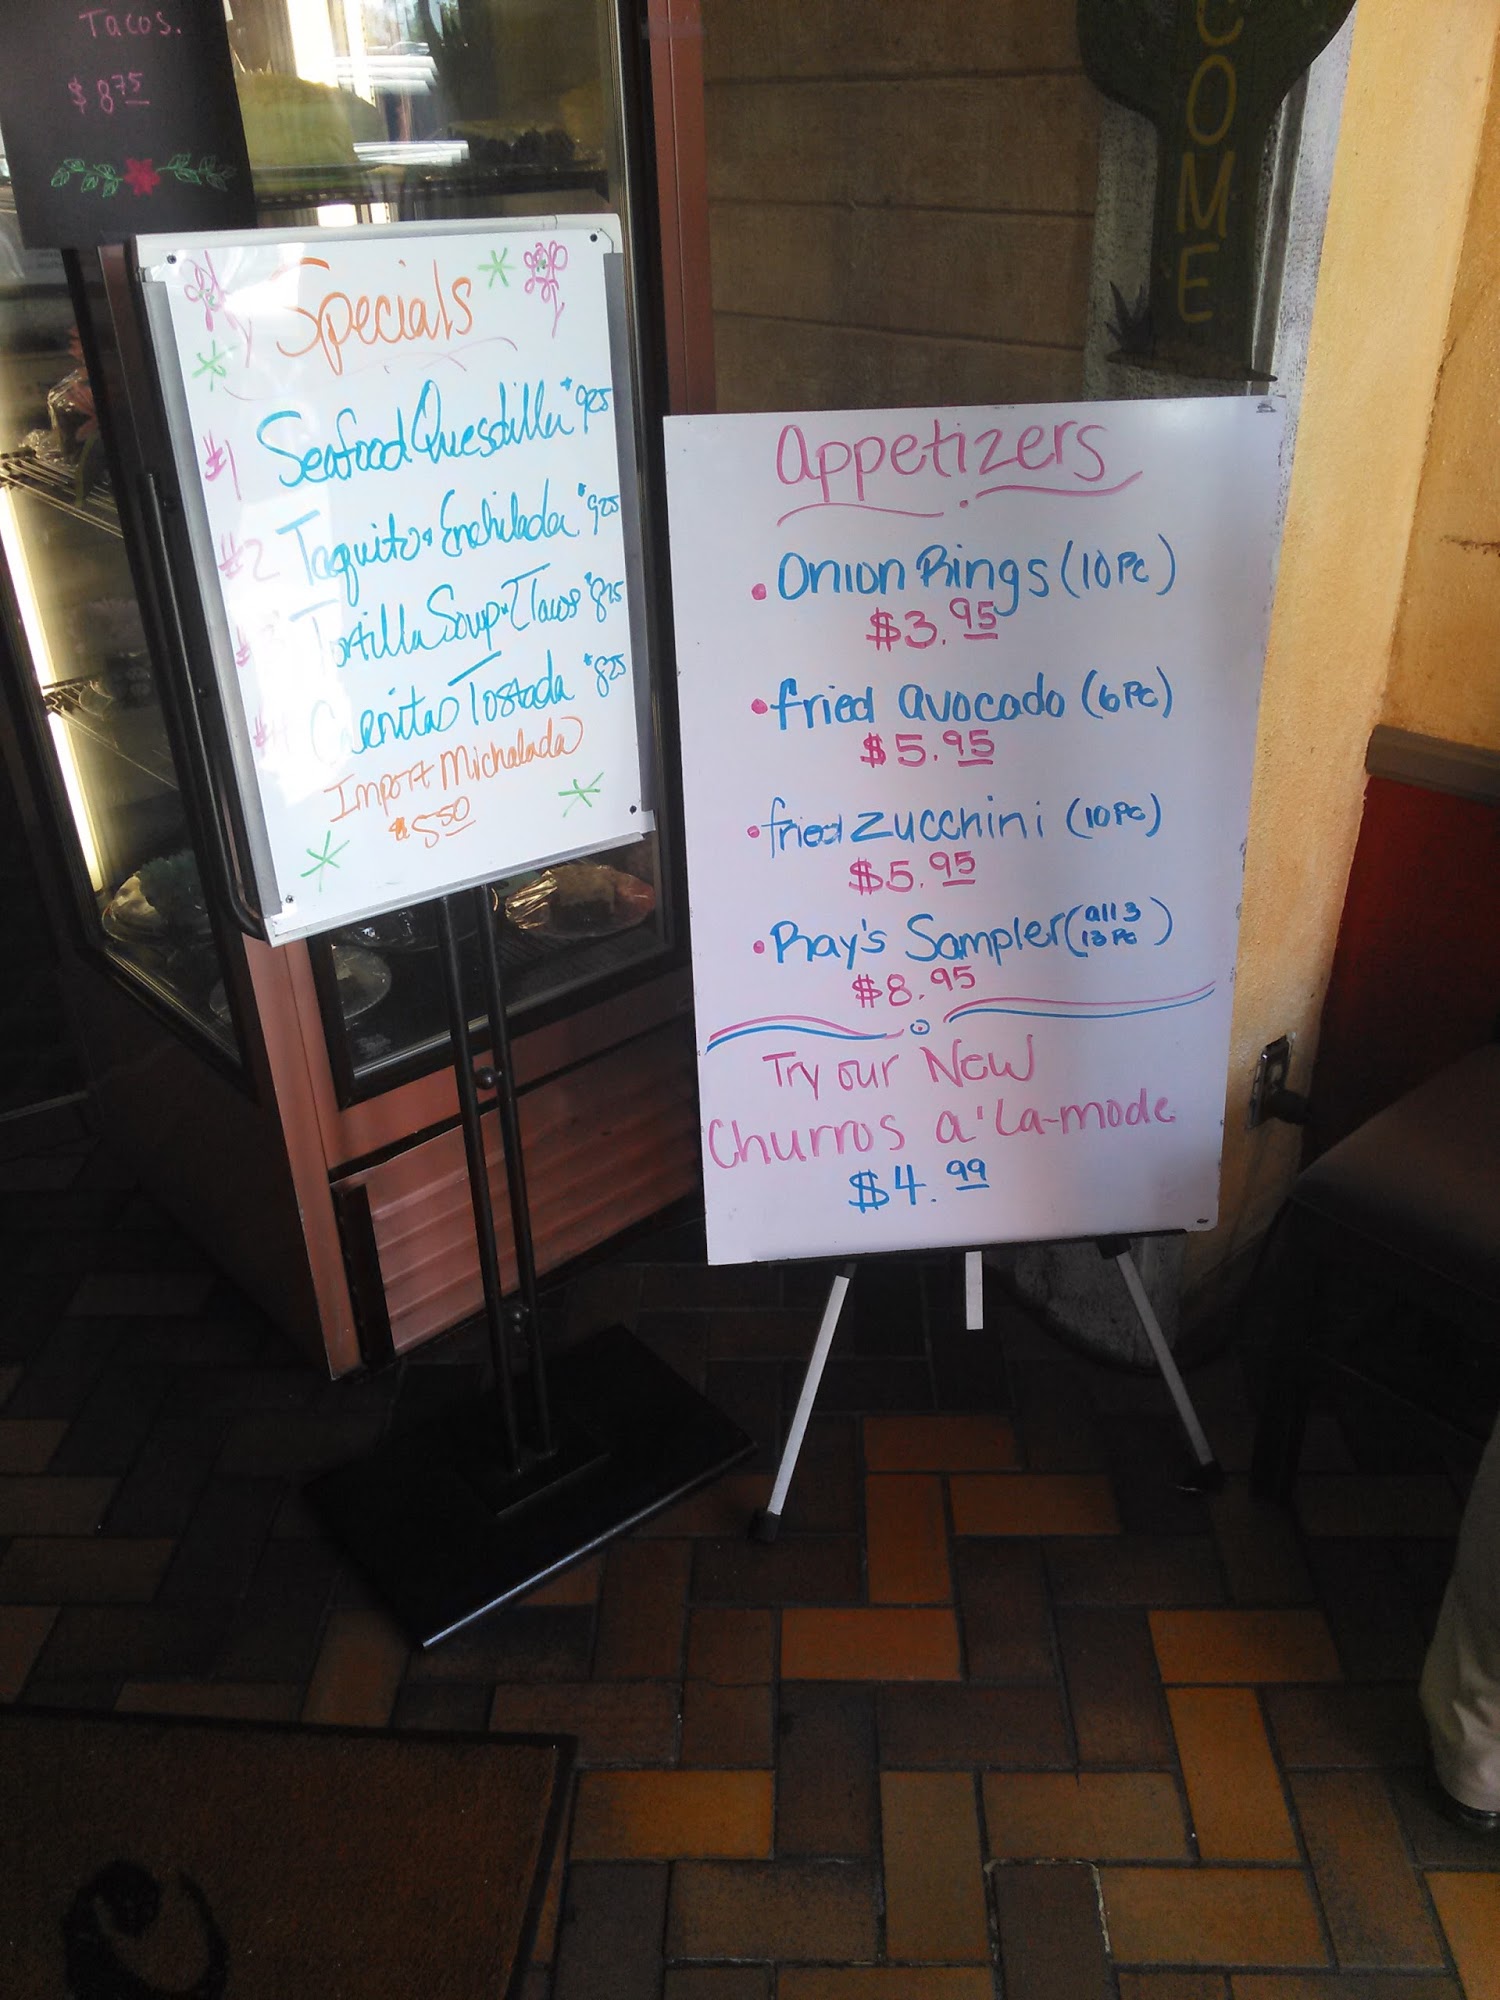 Tacos.
$8.75
COME
Specials
#1 Seafood Quesdilla $9.25
#2 Taquito & Enchilada $9.25
#3 Tortilla Soup & 2 Tacos $8.25
#4 Carnitas Tostada $8.25
Import Michalada
$5.50
Appetizers
• Onion Rings (10 Pc)
$3.95
• fried avocado (6 Pc)
$5.95
• fried zucchini (10 Pc)
$5.95
• Ray's Sampler (all 3 13 Pc)
$8.95
Try our New
Churros a' La-mode
$4.99